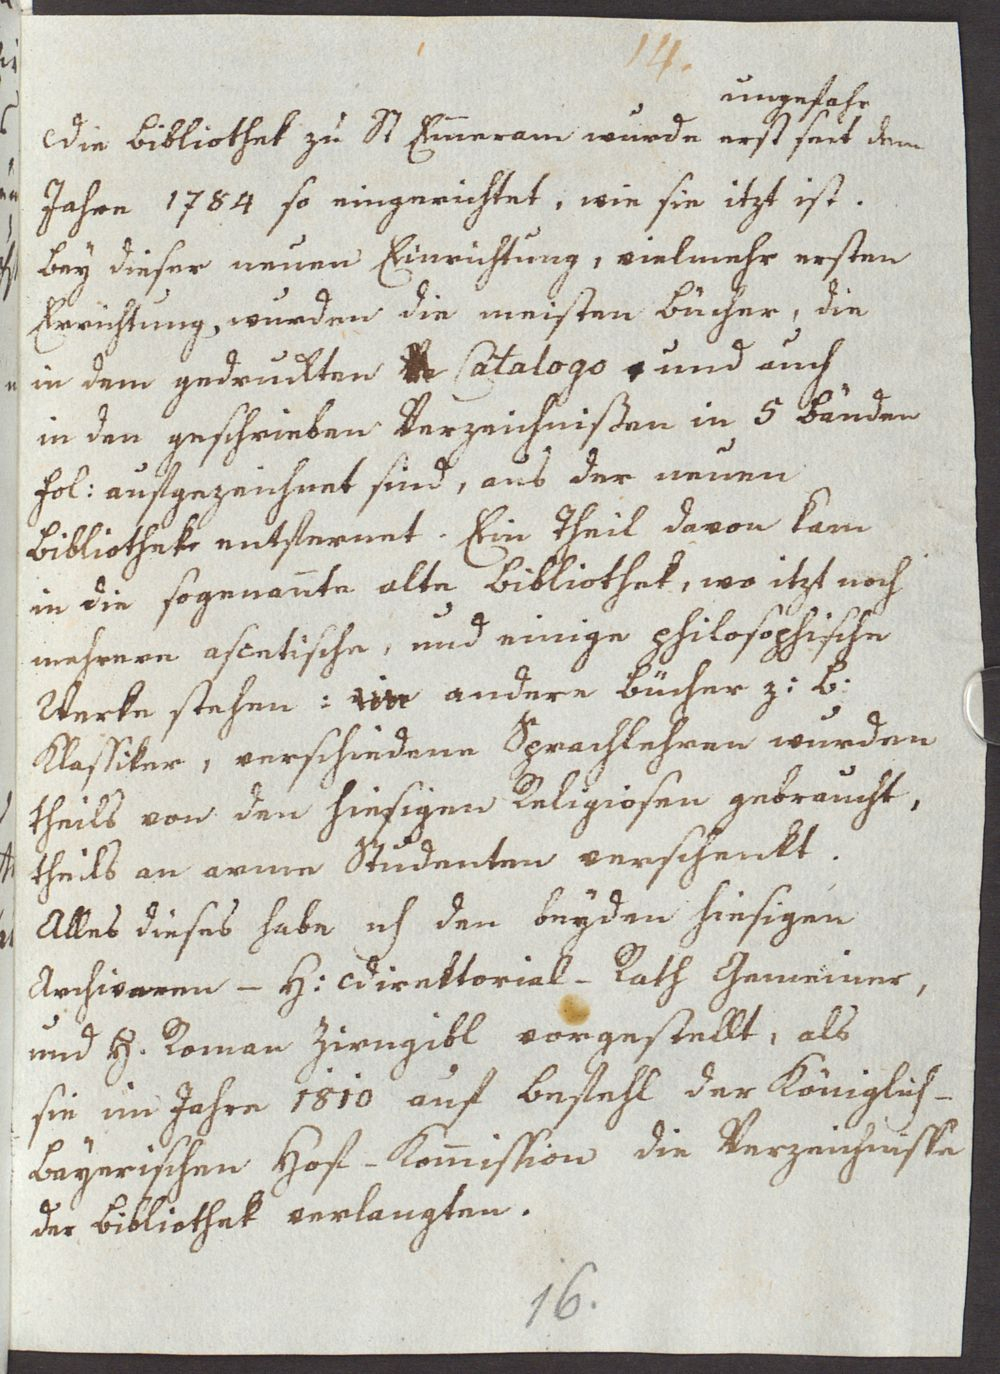 14.
ungefähr
Die Bibliothek zu St Em̅eram wurde erst seit dem
Jahre 1784 so eingerichtet, wie sie itzt ist.
Bey dieser neuen Einrichtung, vielmehr ersten
Errichtung, wurden die meisten Bücher, die
in dem gedruckten Catalogo und auch
in den geschrieben Verzeichnißen in 5 Bänden
fol: aufgezeichnet sind, aus der neuen
Bibliothek entfernet. Ein Theil davon kam
in die sogenan̅te alte Bibliothek, wo itzt noch
mehrere ascetische, und einige philosophische
Werke stehen: andere Bücher z: B:
Klassiker, verschiedene Sprachlehren wurden
theils von den hiesigen Religiosen gebraucht,
theils an arme Studenten verschenkt.
Alles dieses habe ich den beyden hiesigen
Archivaren – H: Direktorial-Rath Gemeiner,
und H. Roman Zirngibl vorgestellt, als
sie im Jahre 1810 auf Befehl der Königlich-
Bayerischen Hof-Kom̅ission die Verzeichnisse
der Bibliothek verlangten.
16.